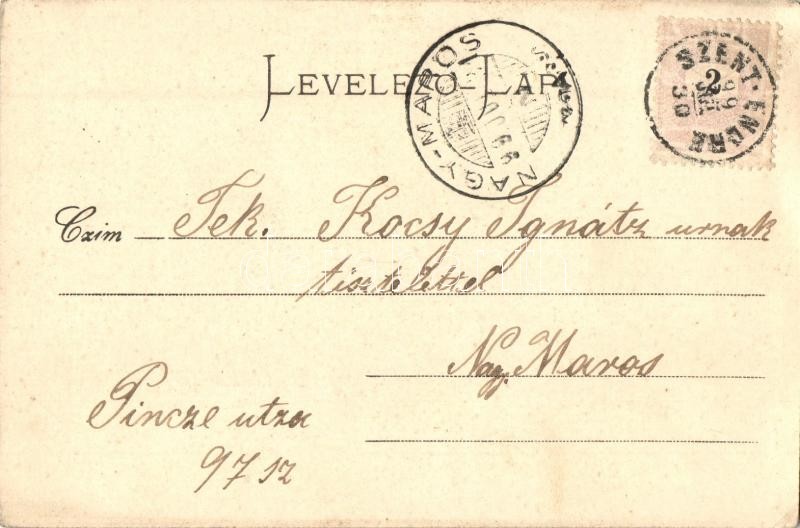 LEVELEZŐ-LAP
NAGY-MAROS
SZENT-ENDRE
99
30
2
Czim Tek. Kocsy Ignátz urnak
tisztelettel
Nagy Maros
Pincze utza
97 sz